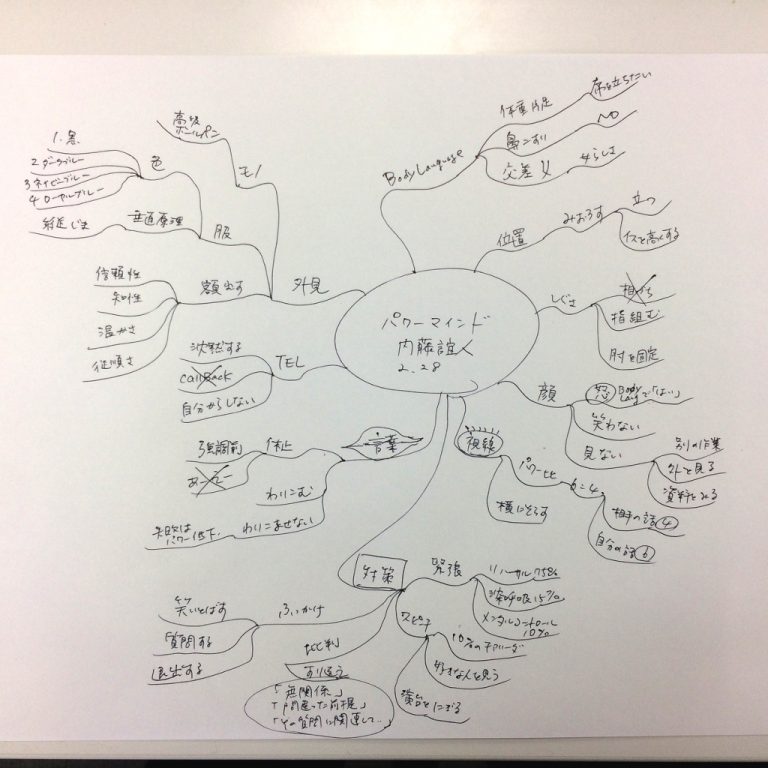 パワーマインド
内藤誼人
2.28
Body Language
体重片足
席を立ちたい
鼻こすり
NO
交差
女らしさ
位置
みおろす
立つ
イスを高くする
しぐさ
相づち
指組む
肘を固定
顔
怒
Body
Langで「はい」
笑わない
見ない
別の作業
外を見る
資料をみる
視線
パワー比
6:4
相手の話④
自分の話⑥
横にそらす
対策
緊張
リハーサル75%
深呼吸15%
メンタルコントロール
10%
スピーチ
10%のアドリブ
好きな人を見う
演台をにぎる
ふいかけ
笑いとばす
質問する
退出する
批判
「無関係」
「間違った前提」
「その質問に関連して…
言葉
休止
強調前
あーえー
わりこむ
わりこませない
失敗は
パワー低下
TEL
沈黙する
callBack
自分からしない
外見
モノ
高級
ボールペン
服
色
1.黒
2 ダークブルー
3 ネイビーブルー
4 ローヤルブルー
垂直原理
額出す
信頼性
知性
温かさ
従順さ